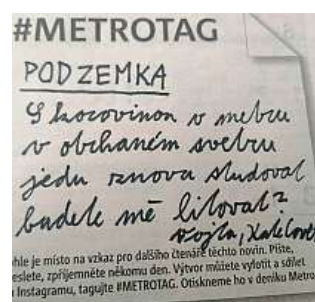 #METROTAG
PODZEMKA
S kocovinou v metru
v obchaném svetru
jedu znova sludoval
budete mě litovat?
Vojta,
hle je místo na vzkaz pro dalšího čtenáře těchto novin. Pište,
eslete, zpříjemněte někomu den. Výtvor můžete vyfotit a sdílet
Instagramu, tagujte #METROTAG. Otiskneme ho v deníku Metro